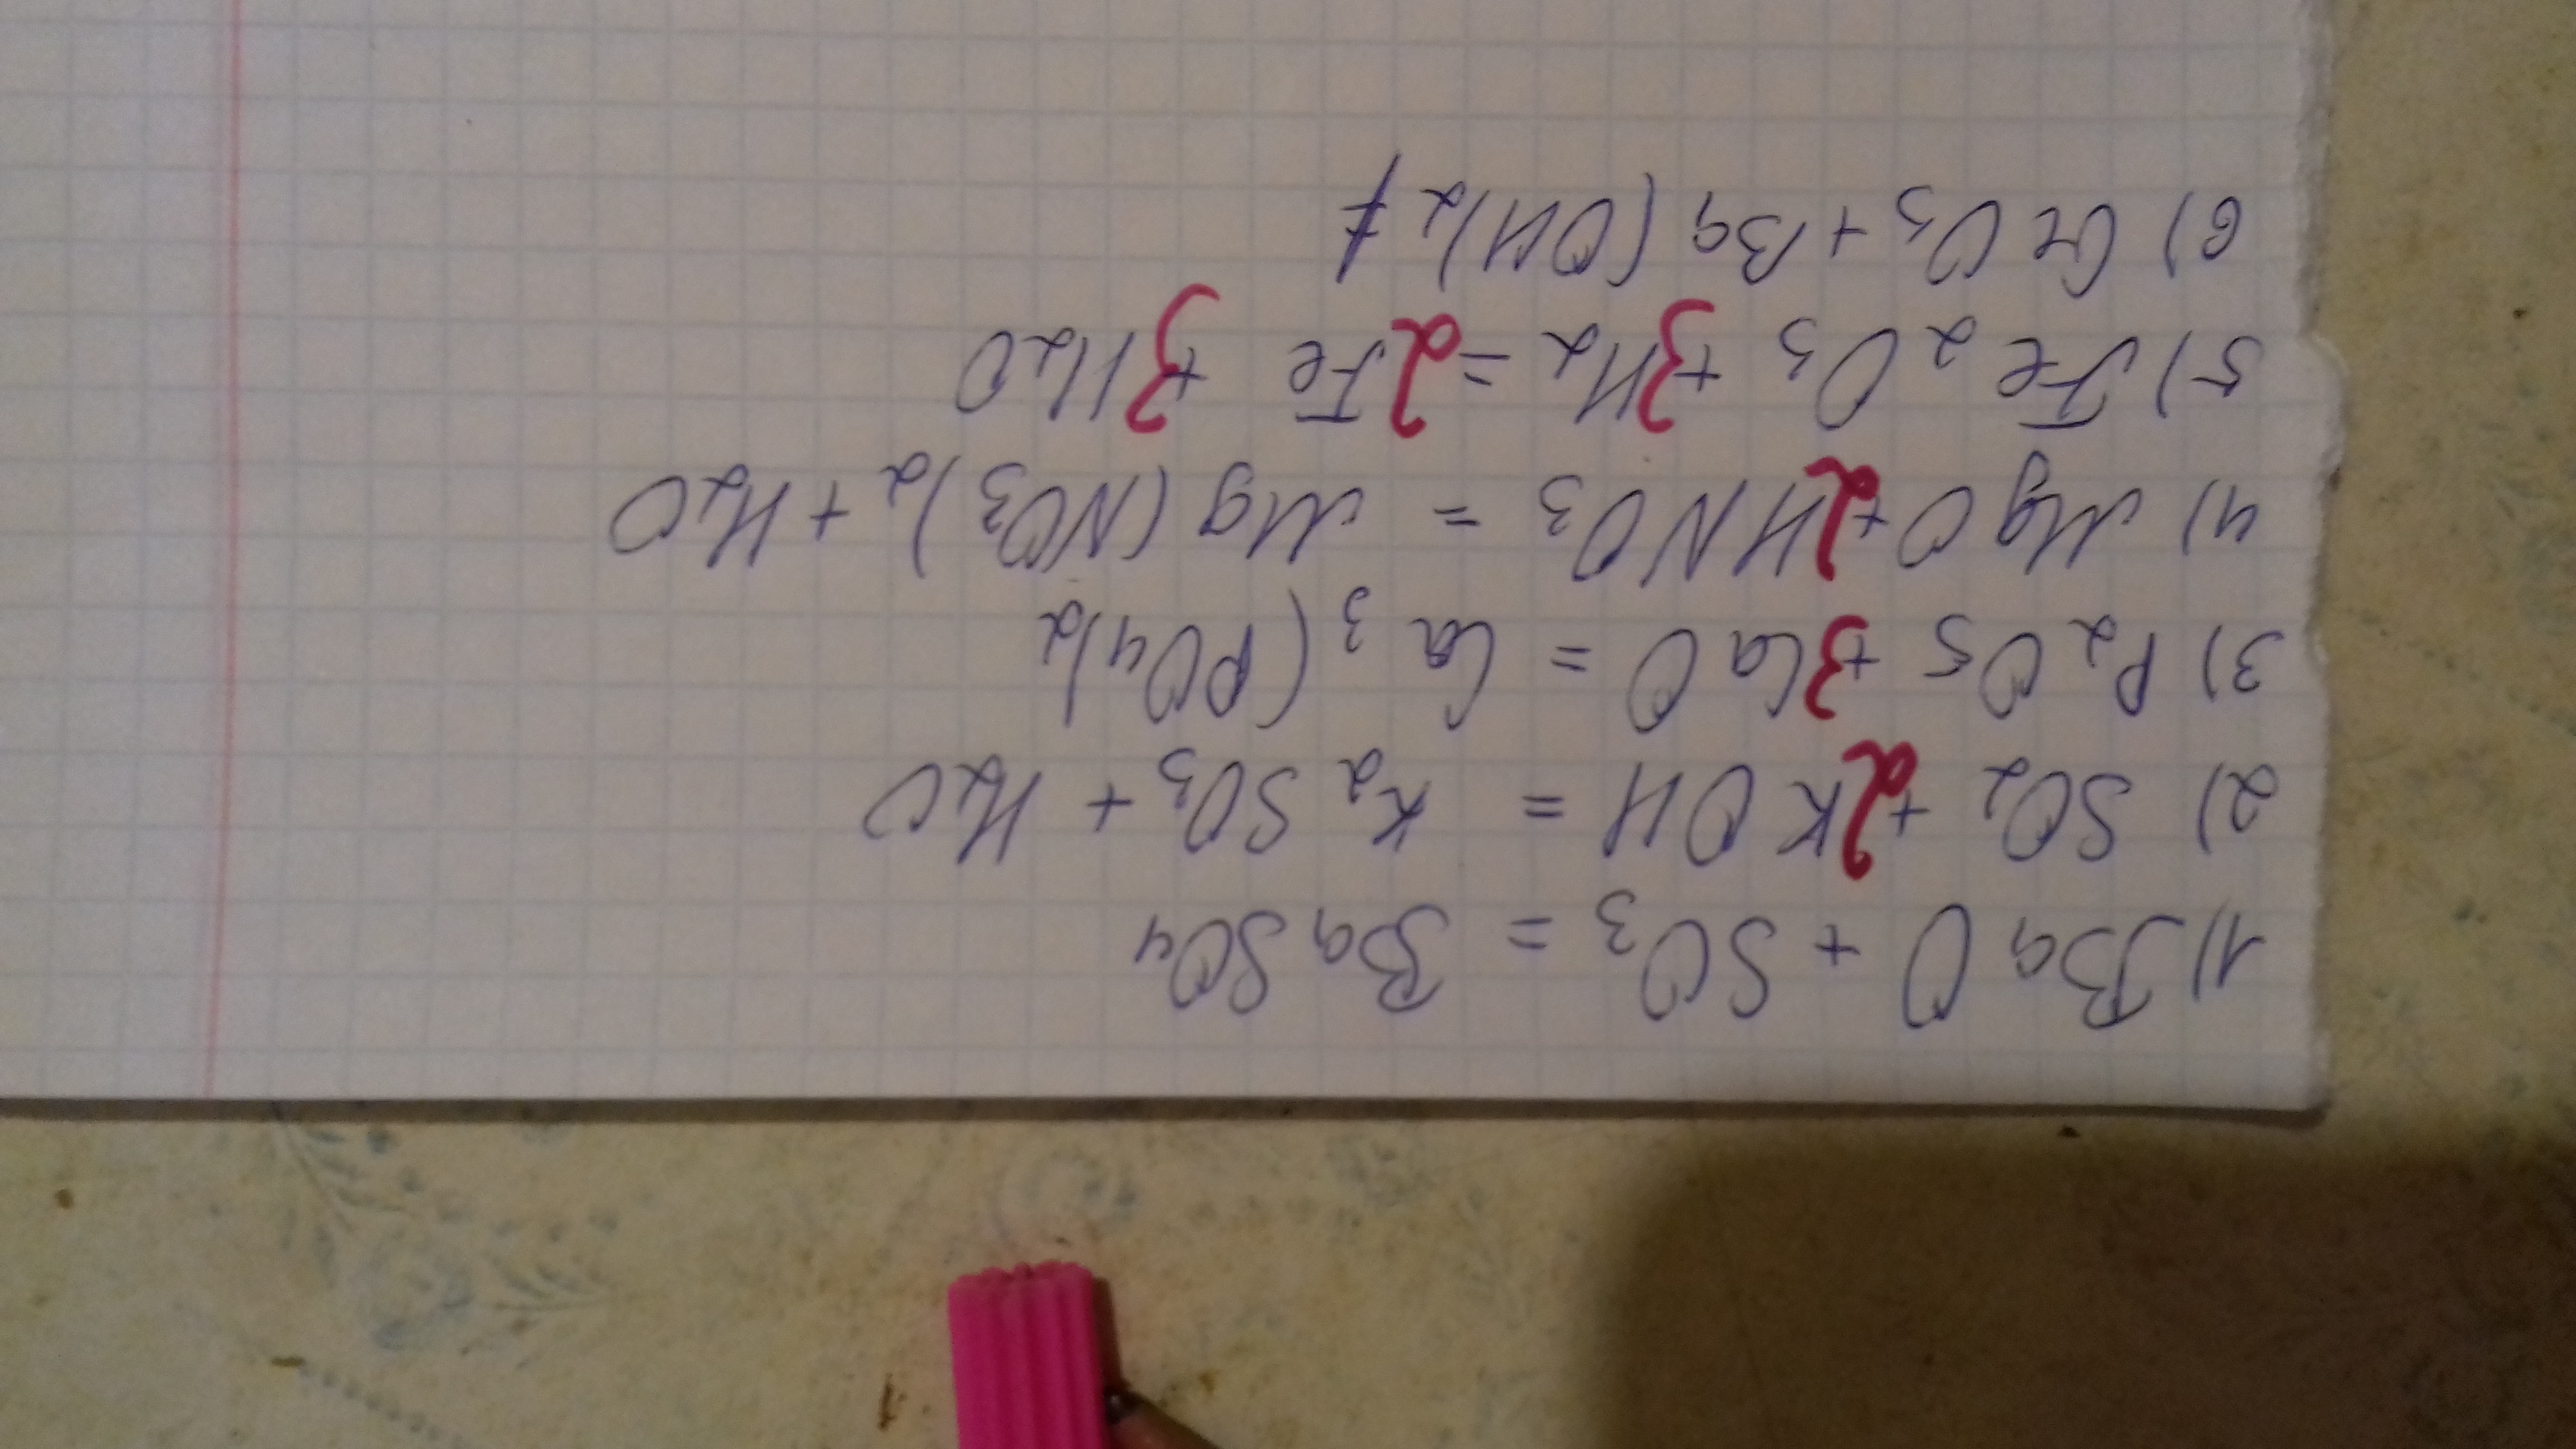 1) BaO + SO3 = BaSO4
2) SO2 + 2KOH = K2SO3 + H2O
3) P2O5 + 3CaO = Ca3(PO4)2
4) MgO + 2HNO3 = Mg(NO3)2 + H2O
5) Fe2O3 + 3H2 = 2Fe + 3H2O
6) CrO3 + Ba(OH)2 ≠